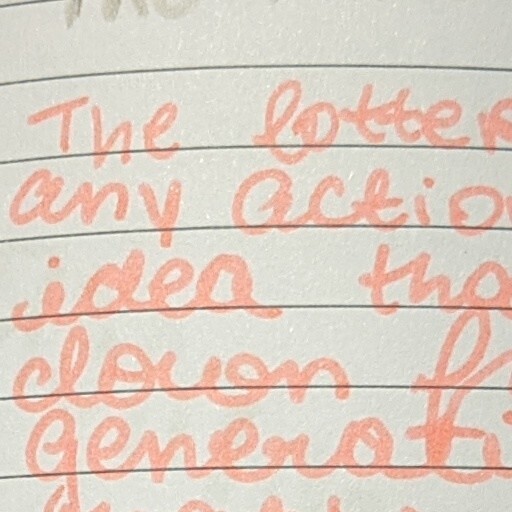 The lotter
any actio
idea tha
down fr
generati